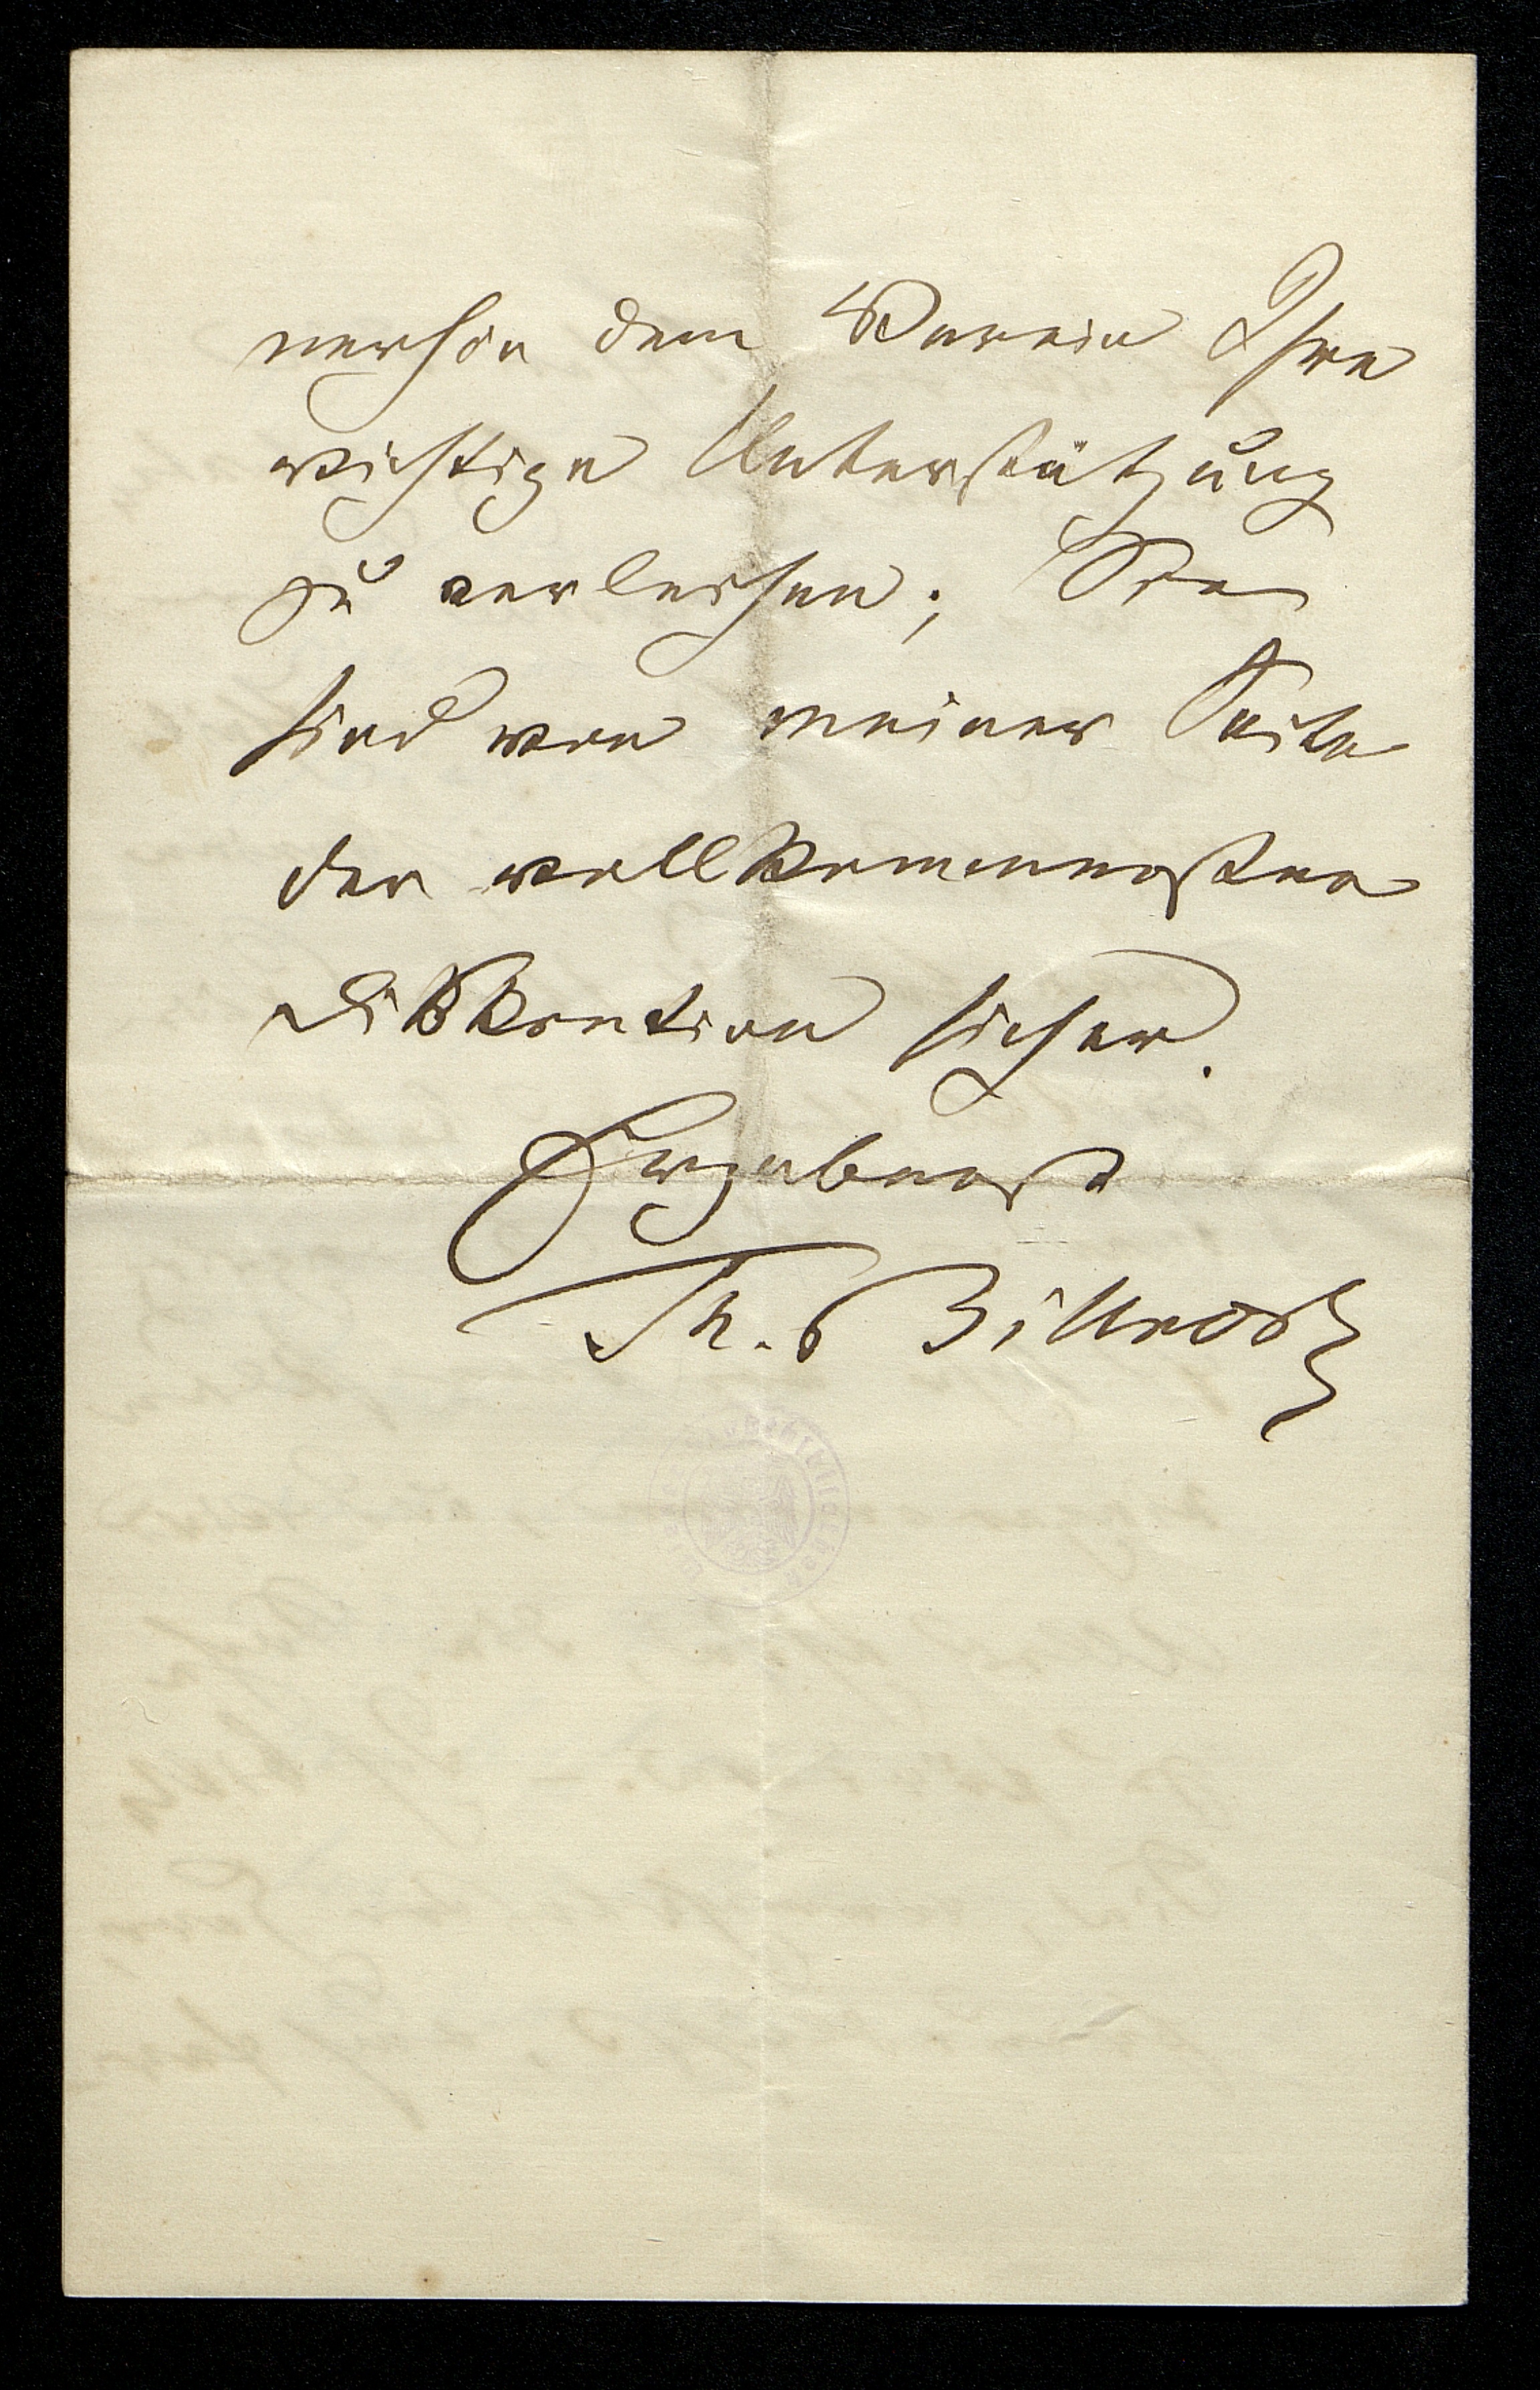 nerhin dem Verein Ihre
wichtige Unterstützung
zu verleihen; Sie
sind von meiner Seite
der vollkommensten
Diskretion sicher.
Ergebenst
Th. Billroth